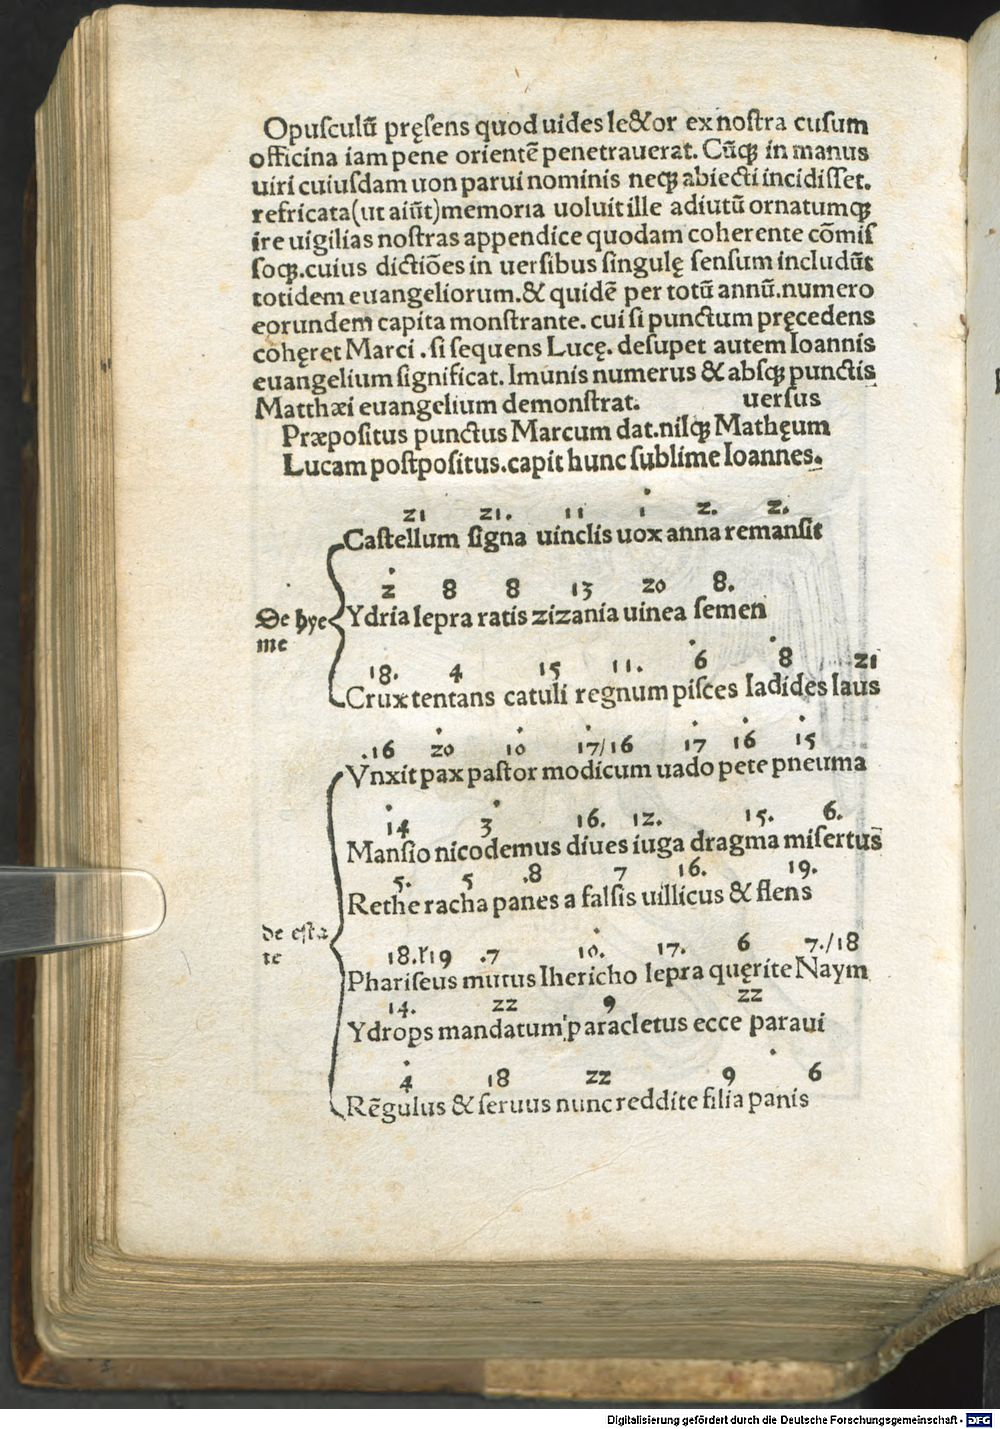 Opusculū pręsens quod uides le&or ex nostra cusum
officina iam pene orientē penetrauerat. Cūqꝫ in manus
uiri cuiusdam uon parui nominis neqꝫ abiecti incidisset.
refricata(ut aiūt)memoria uoluit ille adiutū ornatumqꝫ
ire uigilias nostras appendice quodam coherente cōmis
soqꝫ.cuius dictiōes in uersibus singulę sensum includūt
totidem euangeliorum.& quidē per totū annū.numero
eorundem capita monstrante. cui si punctum pręcedens
cohęret Marci . si sequens Lucę. desupet autem Ioannis
euangelium significat. Imunis numerus & absqꝫ punctis
Matthæi euangelium demonstrat. uersus
Præpositus punctus Marcum dat.nilqꝫ Mathęum
Lucam postpositus.capit hunc sublime Ioannes.
21 21. 11 1 2. 2.
Castellum signa uinclis uox anna remansit
2 8 8 13 20 8.
De hye
me
Ydria lepra ratis zizania uinea semen
18. 4 15 11. 6 8 21
Crux tentans catuli regnum pisces ladides laus
.16 20 10 17/16 17 16 15
Vnxit pax pastor modicum uado pete pneuma
14 3 16. 12. 15. 6.
Mansio nicodemus diues iuga dragma misertus
5. 5 .8 7 16. 19.
Rethe racha panes a falsis uillicus & flens
de esta
te
18.r19 .7 10. 17. 6 7./18
Phariseus mutus Ihericho lepra quęrite Naym
14. 22 9 22
Ydrops mandatum paracletus ecce paraui
4 18 22 9 6
Rēgulus & seruus nunc reddite filia panis
Digitalisierung gefördert durch die Deutsche Forschungsgemeinschaft - DFG